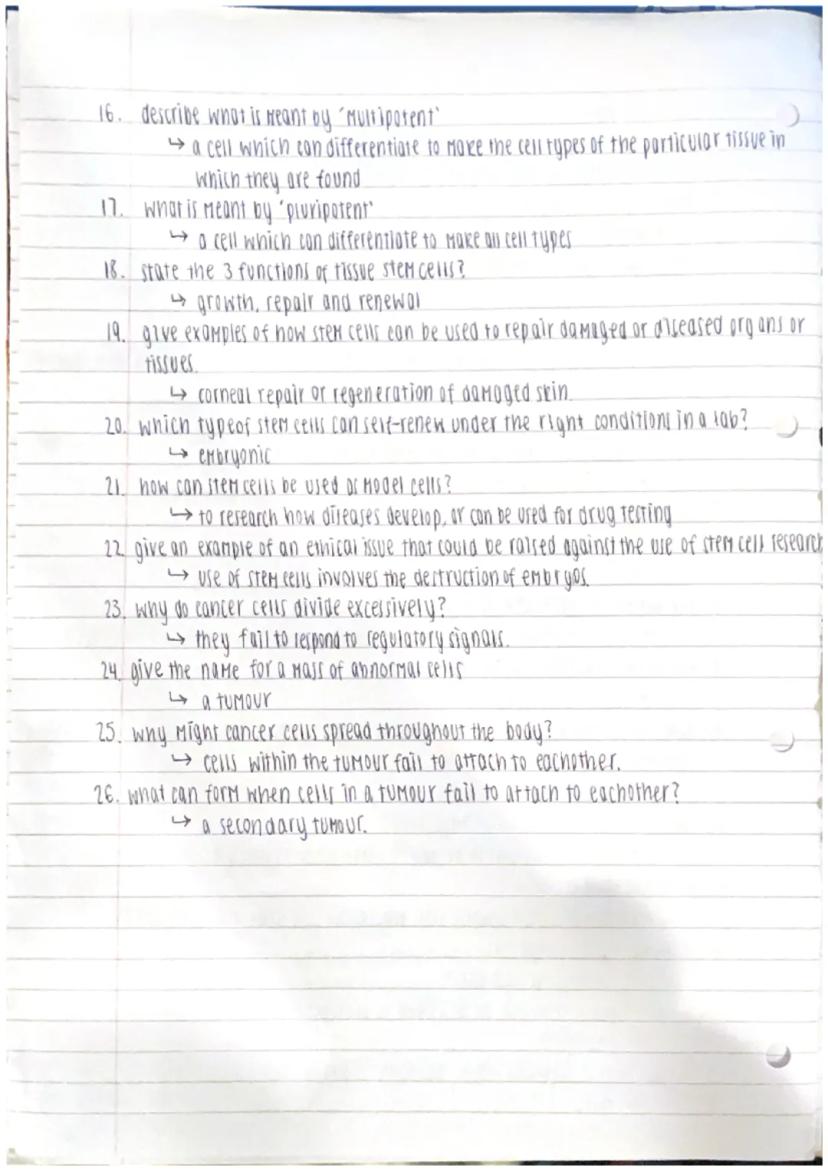 16. describe what is meant by 'multipotent'
↳ a cell which can differentiate to make the cell types of the particular tissue in
which they are found
17. what is meant by 'pluripotent'
↳ a cell which can differentiate to make all cell types
18. state the 3 functions of tissue stem cells?
↳ growth, repair and renewal
19. give examples of how stem cells can be used to repair damaged or diseased organs or
tissues.
↳ corneal repair or regeneration of damaged skin.
20. which type of stem cells can self-renew under the right conditions in a lab?
↳ embryonic
21. how can stem cells be used as model cells?
↳ to research how diseases develop, or can be used for drug testing
22. give an example of an ethical issue that could be raised against the use of stem cell research
↳ use of stem cells involves the destruction of embryos.
23. why do cancer cells divide excessively?
↳ they fail to respond to regulatory signals.
24. give the name for a mass of abnormal cells
↳ a tumour
25. why might cancer cells spread throughout the body?
↳ cells within the tumour fail to attach to eachother.
26. what can form when cells in a tumour fail to attach to eachother?
↳ a secondary tumour.